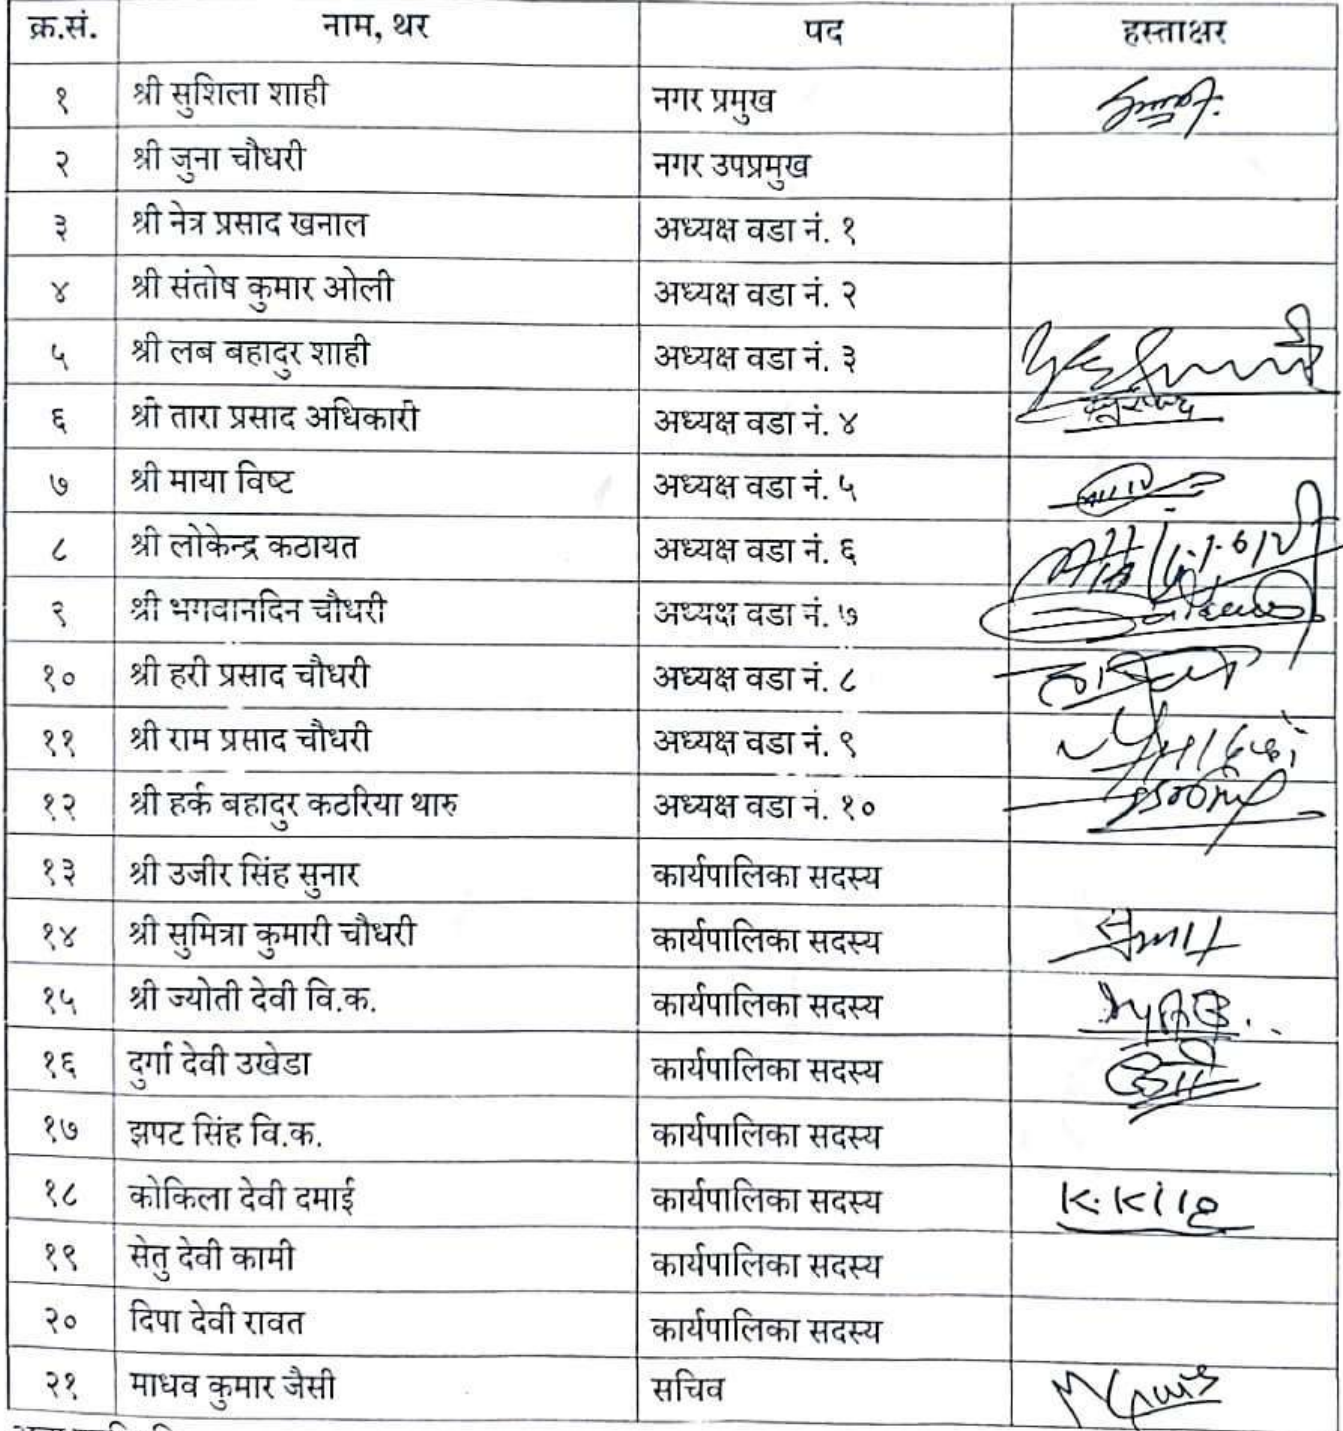 क्र.सं. नाम, थर पद हस्ताक्षर
१ श्री सुशिला शाही नगर प्रमुख
२ श्री जुना चौधरी नगर उपप्रमुख
३ श्री नेत्र प्रसाद खनाल अध्यक्ष वडा नं. १
४ श्री संतोष कुमार ओली अध्यक्ष वडा नं. २
५ श्री लब बहादुर शाही अध्यक्ष वडा नं. ३
६ श्री तारा प्रसाद अधिकारी अध्यक्ष वडा नं. ४
७ श्री माया विष्ट अध्यक्ष वडा नं. ५
८ श्री लोकेन्द्र कठायत अध्यक्ष वडा नं. ६
९ श्री भगवानदिन चौधरी अध्यक्ष वडा नं. ७
१० श्री हरी प्रसाद चौधरी अध्यक्ष वडा नं. ८
११ श्री राम प्रसाद चौधरी अध्यक्ष वडा नं. ९
१२ श्री हर्क बहादुर कठरिया थारु अध्यक्ष वडा नं. १०
१३ श्री उजीर सिंह सुनार कार्यपालिका सदस्य
१४ श्री सुमित्रा कुमारी चौधरी कार्यपालिका सदस्य
१५ श्री ज्योती देवी वि.क. कार्यपालिका सदस्य
१६ दुर्गा देवी उखेडा कार्यपालिका सदस्य
१७ झपट सिंह वि.क. कार्यपालिका सदस्य
१८ कोकिला देवी दमाई कार्यपालिका सदस्य
१९ सेतु देवी कामी कार्यपालिका सदस्य
२० दिपा देवी रावत कार्यपालिका सदस्य
२१ माधव कुमार जैसी सचिव